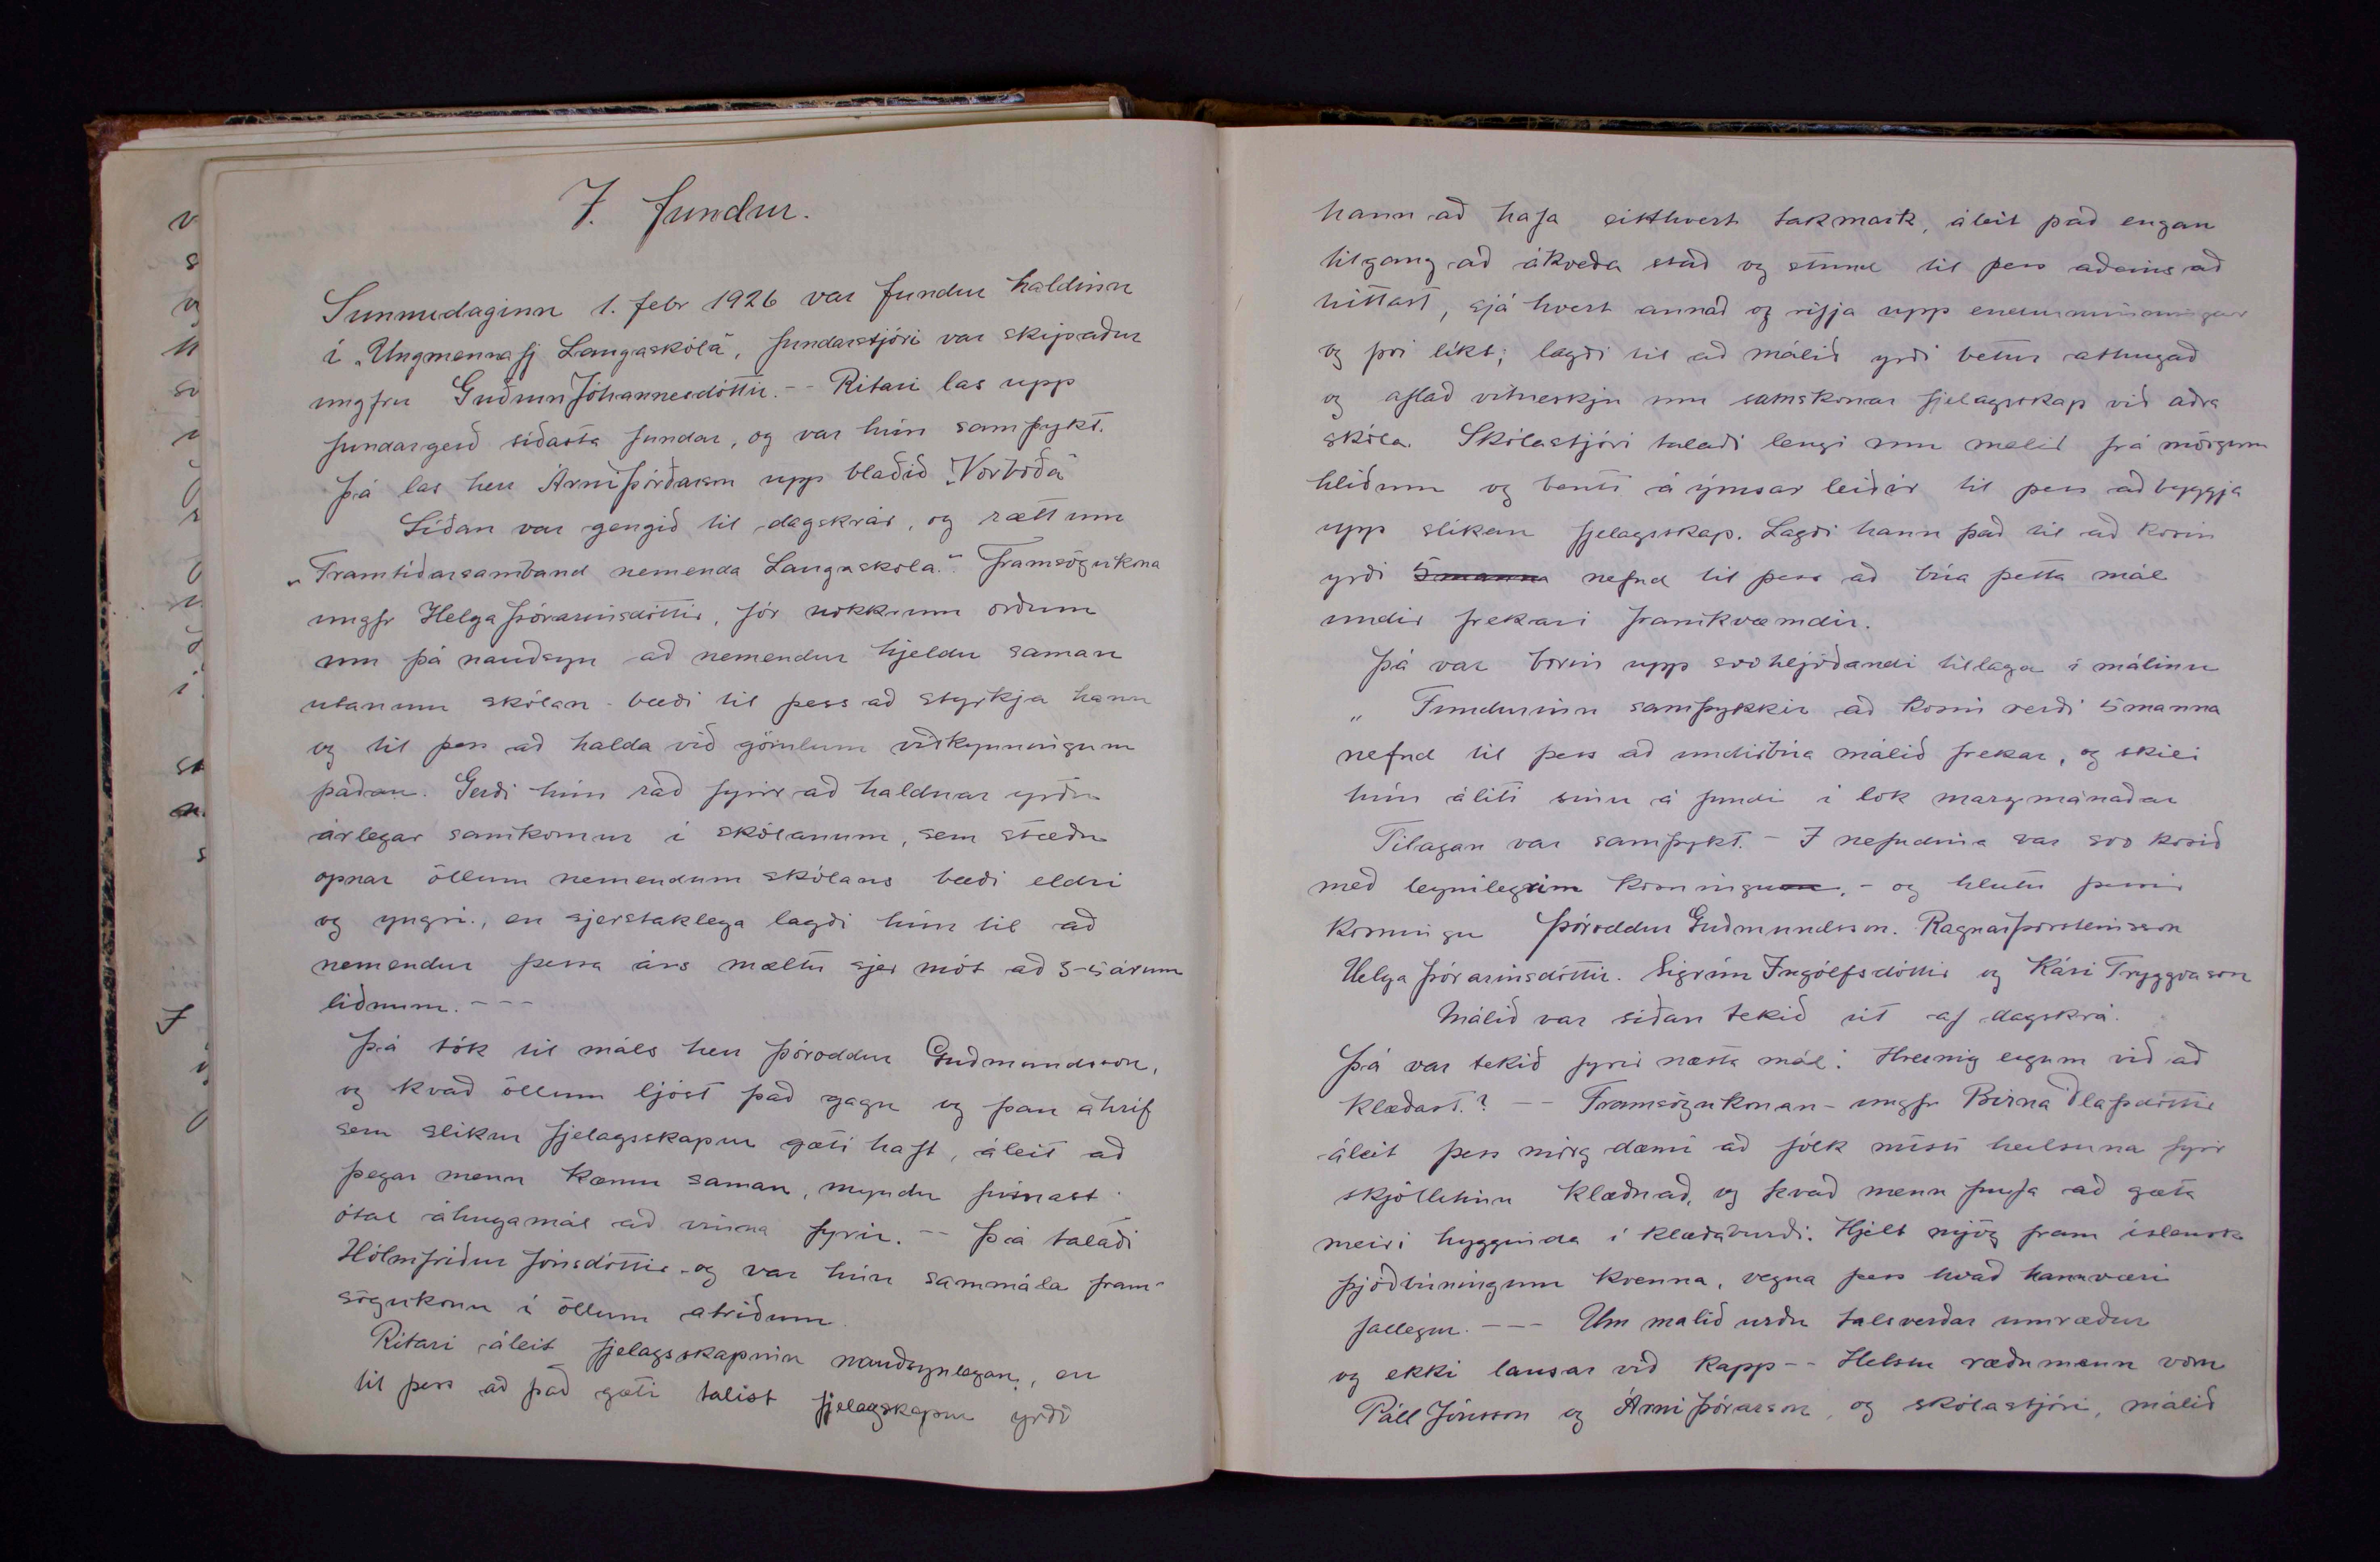 7. fundur.
Sunnudaginn 1. febr 1926 var fundur haldinn
í „Ungmennafj Laugaskóla", fundarstjóri var skipaður
ungfrú Guðrún Jóhannesdóttir. -- Ritari las upp
fundargerð síðasta fundar, og var hún samþykt.
Þá las herr Árni Þórðarson upp blaðið "Vorboða"
Síðan var gengið til dagskrár, og rætt um
„Framtíðarsamband nemenda Laugaskóla." Framsögukona
ungfr Helga Þórarinsdóttir, fór nokkrum orðum
um þá nauðsyn að nemendur hjeldu saman
utanum skólan - bæði til þess ad styrkja hann
og til þess að halda við gömlum viðkynningum
þaðan. Gerði hún ráð fyrir að haldnar yrðu
árlegar samkomur í skólanum, sem stæðu
opnar öllum nemendum skólans bæði eldri
og yngri., en sjerstaklega lagði hún til að
nemendur þessa árs mæltu sjer mót að 3-5 árum
liðnum. ---
Þá tók til máls herr Þóroddur Guðmundsson,
og kvað öllum ljóst það gagn og þau áhrif
sem slíkur fjelagsskapur gæti haft, áleit að
þegar menn kæmu saman, myndu finnast
ótal áhugamál að vinna fyrir. -- Þá talaði
Hólmfríður Jónsdóttir - og var hún sammála fram-
sögukonu í öllum atriðum.
Ritari áleit fjelagsskapinn nauðsynlegan, en
til þess að það gæti talist fjelagskapur yrði
hann að hafa eitthvert takmark, áleit það engan
tilgang að ákveða stað og stund til þess aðeins að
hittast, sjá hvert annað og rifja upp endurminningar
og því líkt; lagði til að málið yrði betur athugað
og aflað vitneskju um samskonar fjelagsskap við aðra
skóla. Skólastjóri talaði lengi um malið frá mörgum
hliðum og benti á ýmsar leiðir til þess að byggja
upp slíkan fjelagsskap. Lagði hann það til að kosin
yrði 5 manna nefnd til þess að búa þetta mál
undir frekari framkvæmdir.
Þá var borin upp svohljóðandi tillaga í málinu
„ Fundurinn samþykkir að kosin verði 5 manna
nefnd til þess að undirbúa málið frekar, og skili
hún áliti sínu á fundi í lok marzmánaðar
Tilagan var samþykt. - I nefndina var svo kosið
með leynilegrim kosningum, - og hlutu þessir
kosningu Þóroddur Guðmundsson. Ragnar Þorsteinsson
Helga Þórarinsdóttir. Sigrún Ingólfsdóttir og Kári Tryggvason
Málið var síðan tekið út af dagskrá.
Þá var tekið fyrir næsta mál: Hvernig eigum við að
klæðast.? -- Framsögukonan - ungfr Birna Ólafsdóttir
áleit þess mörg dæmi að fólk misti heilsuna fyrir
skjóllitinn klæðnað, og kvað menn þurfa að gæta
meiri hygginda í klæðaburði. Hjelt mjög fram íslensk
þjóðbúningum kvenna, vegna þess hvað hann væri
fallegur. --- Um malið urðu talsverðar umræður
og ekki lausar við kapp -- Helstu ræðumenn vóru
Páll Jónsson og Árni Þórarson, og skólastjóri, málið